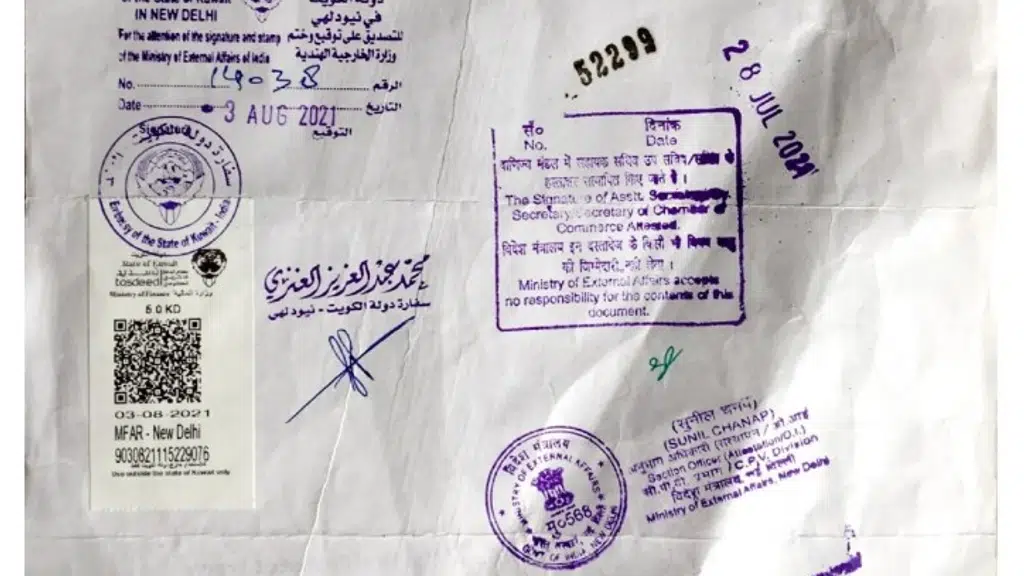 of the State of Kuwait
IN NEW DELHI
For the attention of the signature and stamp
of the Ministry of External Affairs of India
دولة الكويت
في نيودلهي
للتصديق على توقيع وختم
وزارة الخارجية الهندية
No. 14038 الرقم
Date 3 AUG 2021 التاريخ
Signature التوقيع
سفارة دولة الكويت
Embassy of the State of Kuwait, India
State of Kuwait
tasdeed
Ministry of Finance وزارة المالية
5.0 KD
03-08-2021
MFAR - New Delhi
9030821115229076
Use outside the state of Kuwait only
محمد عبدالعزيز العنزي
سفارة دولة الكويت - نيودلهي
52299
28 JUL 2021
सं० दिनांक
No. Date
वाणिज्य मंडल में सहायक सचिव उप सचिव/सचिव के
हस्ताक्षर सत्यापित किए जाते हैं।
The Signature of Asstt. Secretary/Dy.
Secretary/Secretary of Chamber of
Commerce Attested.
विदेश मंत्रालय इस दस्तावेज के किसी भी विषय वस्तु
की जिम्मेदारी नहीं लेता।
Ministry of External Affairs accepts
no responsibility for the contents of this
document.
(SUNIL CHANAP)
अनुभाग अधिकारी
Section Officer (Attestation/O.I.)
C.P.V. Division
विदेश मंत्रालय, नई दिल्ली
Ministry of External Affairs, New Delhi
विदेश मंत्रालय
MINISTRY OF EXTERNAL AFFAIRS
म०568
GOVT. OF INDIA, NEW DELHI